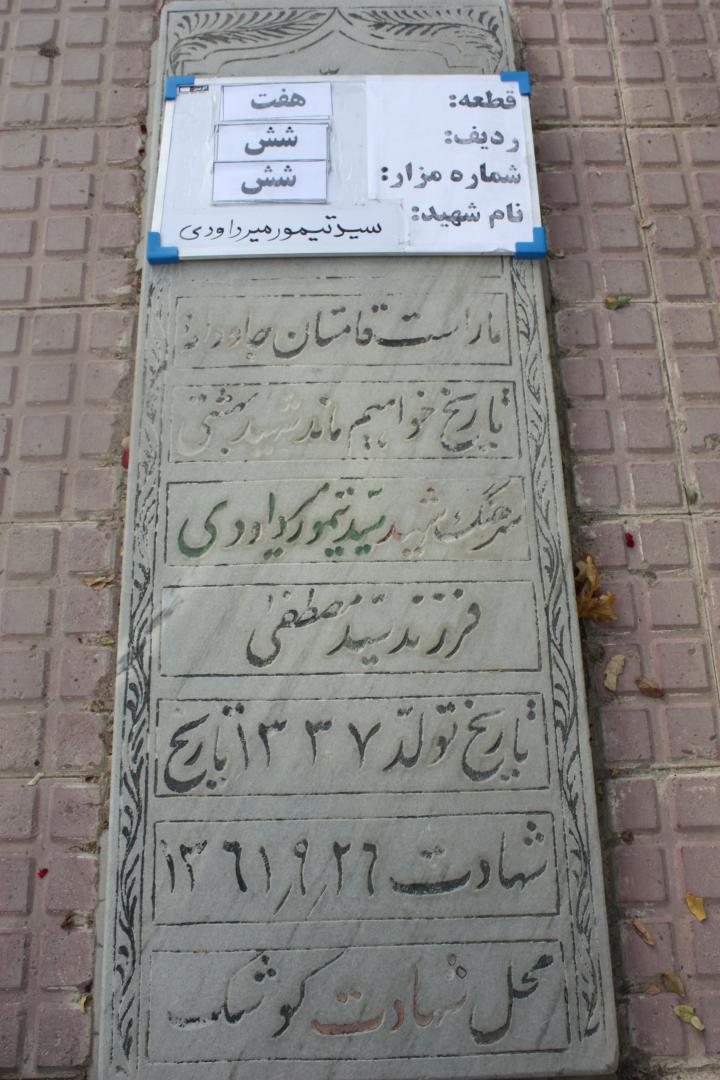 قطعه: هفت
ردیف: شش
شماره مزار: شش
نام شهید: سید تیمور میرداودی
ما راست قامتان جاودانه
تاریخ خواهیم ماند شهید بهشتی
سرهنگ شهید سیّد تیمور میرداودی
فرزند سیّد مصطفی
تاریخ تولّد ۱۳۳۷ تاریخ
شهادت ۱۳۶۱٫۹٫۲۶
محل شهادت کوشک